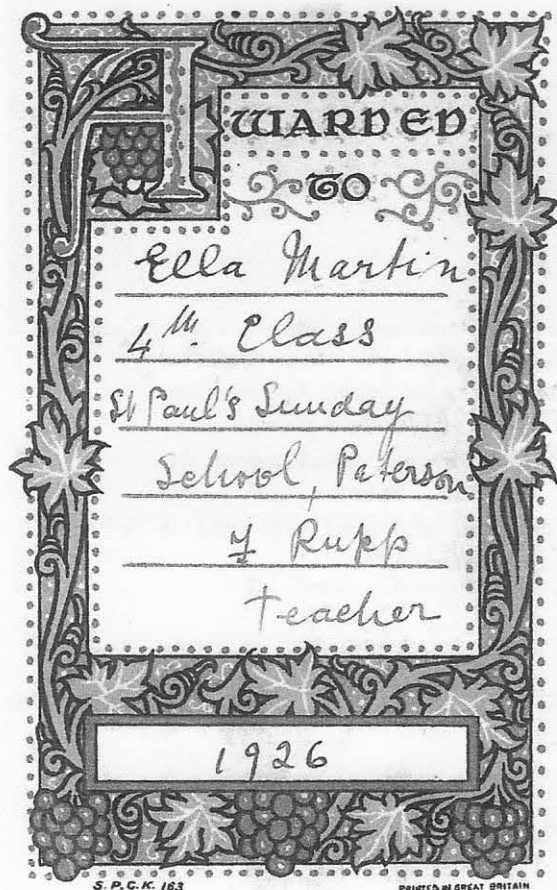 AWARDED
TO
Ella Martin
4th. Class
St Paul's Sunday
School, Paterson
F Rupp
Teacher
1926
S.P.C.K. 163
PRINTED IN GREAT BRITAIN